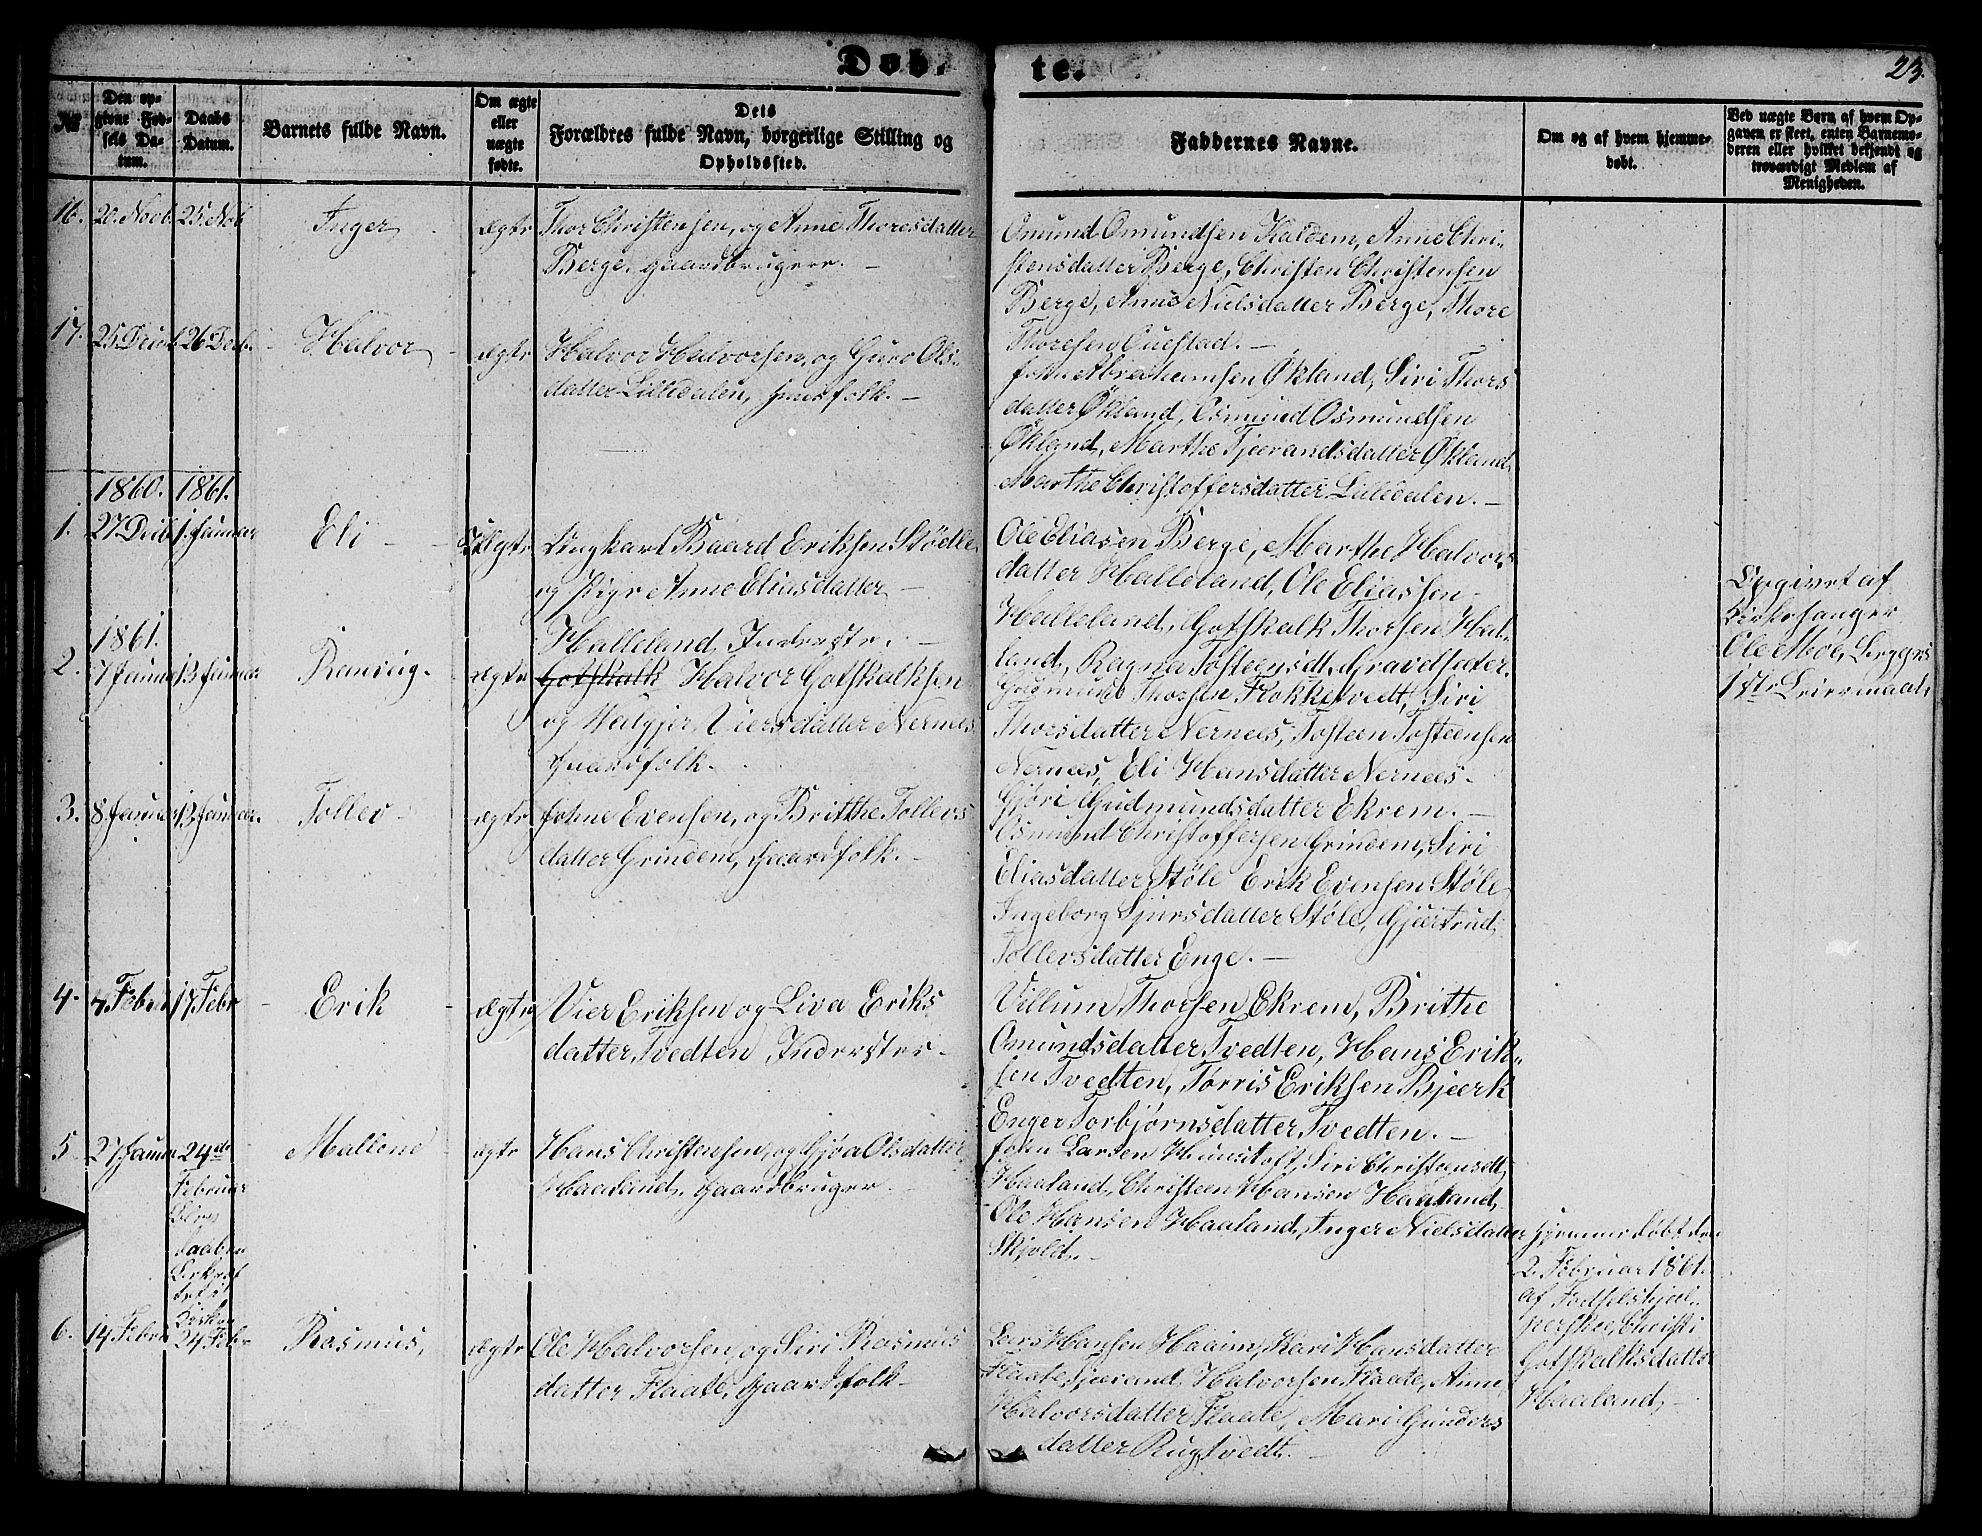 Døb. te.
23.
No
Den op-
givne Fød-
sels Da-
tum.
Daabs
Datum.
Barnets fulde Navn.
Om ægte
eller
uægte
fødte.
Dets
Forældres fulde Navn, borgerlige Stilling og
Opholdssted.
Faddernes Navne.
Om og af hvem hjemme-
døbt.
Ved uægte Børn af hvem Op-
gaven er skeet, enten Barnemo-
deren eller hvilket bekjendt og
troværdigt Medlem af
Menigheden.
16. 20. Novb. 25. Nob Inger ægte
Thor Christensen, og Anne Thoresdatter
Berge, gaardbrugere. -
Omund Omundsen Kaldem, Anne Chri-
stensdatter Berge, Christen Christensen
Berge, Anne Nielsdatter Berge, Thore
Thoresen Questad. -
17. 26 Decb. Halvor ægte
Halvor Halvorsen, og Guro Ols-
datter Lilledalen, huusfolk. -
John Abrahamsen Økland, Siri Thors
datter Økland, Osmund Osmundsen
Økland, Marthe Tjerandsdatter Økland,
Marthe Christoffersdatter Lilledalen. -
1860. 1861.
1. 27 Decb. 1. Januar Eli - Uægte
Ungkarl Baard Eriksen Stødle
og Pige Anne Eliasdatter
Halleland, Inderste. -
Ole Eliasen Berge, Marthe Halvors-
datter Halleland, Ole Eliassen
Halleland, Gotskalk Thorsen Hal-
land, Ragna Tosteensdt. Gravelsæter.
Opgivet af
Kirkesanger
Ole Moe, Begges
1ste Leiermaal.
1861.
2. 7 Januar 13 Januar Ranveig. ægte
Gotskalk Halvor Gotskalksen
og Valgjer Viersdatter Nernes
Gaardfolk.
Gudmund Thorsen Flokketvedt, Siri
Thorsdatter Nernees, Tosteen Tosteensen
Nernees, Eli Hansdatter Nernees-
Gjøri Gudmundsdatter Ekrem. -
3. 8 Januar 13 Januar. Tollev - ægte
Johne Evensen, og Britthe Tollevs
datter Grindem, Gaardfolk. -
Osmund Christoffersen Grindem, Siri
Eliasdatter Støle Erik Evensen Støle
Ingeborg Sjursdatter Støle, Gjertrud
Tollevsdatter Enge. -
4. Febru 17 Febr - Erik - ægte
Vier Eriksen og Liva Eriks
datter Tvedten, Inderster -
Villum Thorsen Ekrem, Brithe
Omundsdatter Tvedten, Hans Erik-
sen Tvedten, Tørris Eriksen Bjeerk
Enger Torbjørnsdatter Tvedten. -
5 27 Januar 24de
Februar
Daaben
Kirken
Maliene ægte
Hans Christensen, og Gjøa Olsdatter
Haaland, Gaardbruger.
John Larsen Hunstoft, Siri Christensdt,
Haaland, Christeen Hansen Haaland,
Ole Hansen Haaland, Inger Nielsdatter
Skjold. -
Hjemmedøbt den
2. Februar 1861.
af Fødselshjæl-
perske, Christi
Gotskalksdatter
Haaland, -
6. 14 Febru 24 Febr Rasmus, ægte
Ole Halvorsen, og Siri Rasmus
datter Flaate, Gaardfolk -
Lars Hansen Haaim, Kari Hansdatter
Flaate, Tjerand Halvorsen Flaate, Anne
Halvorsdatter Flaate, Mari Gunders
datter Rugtvedt. -